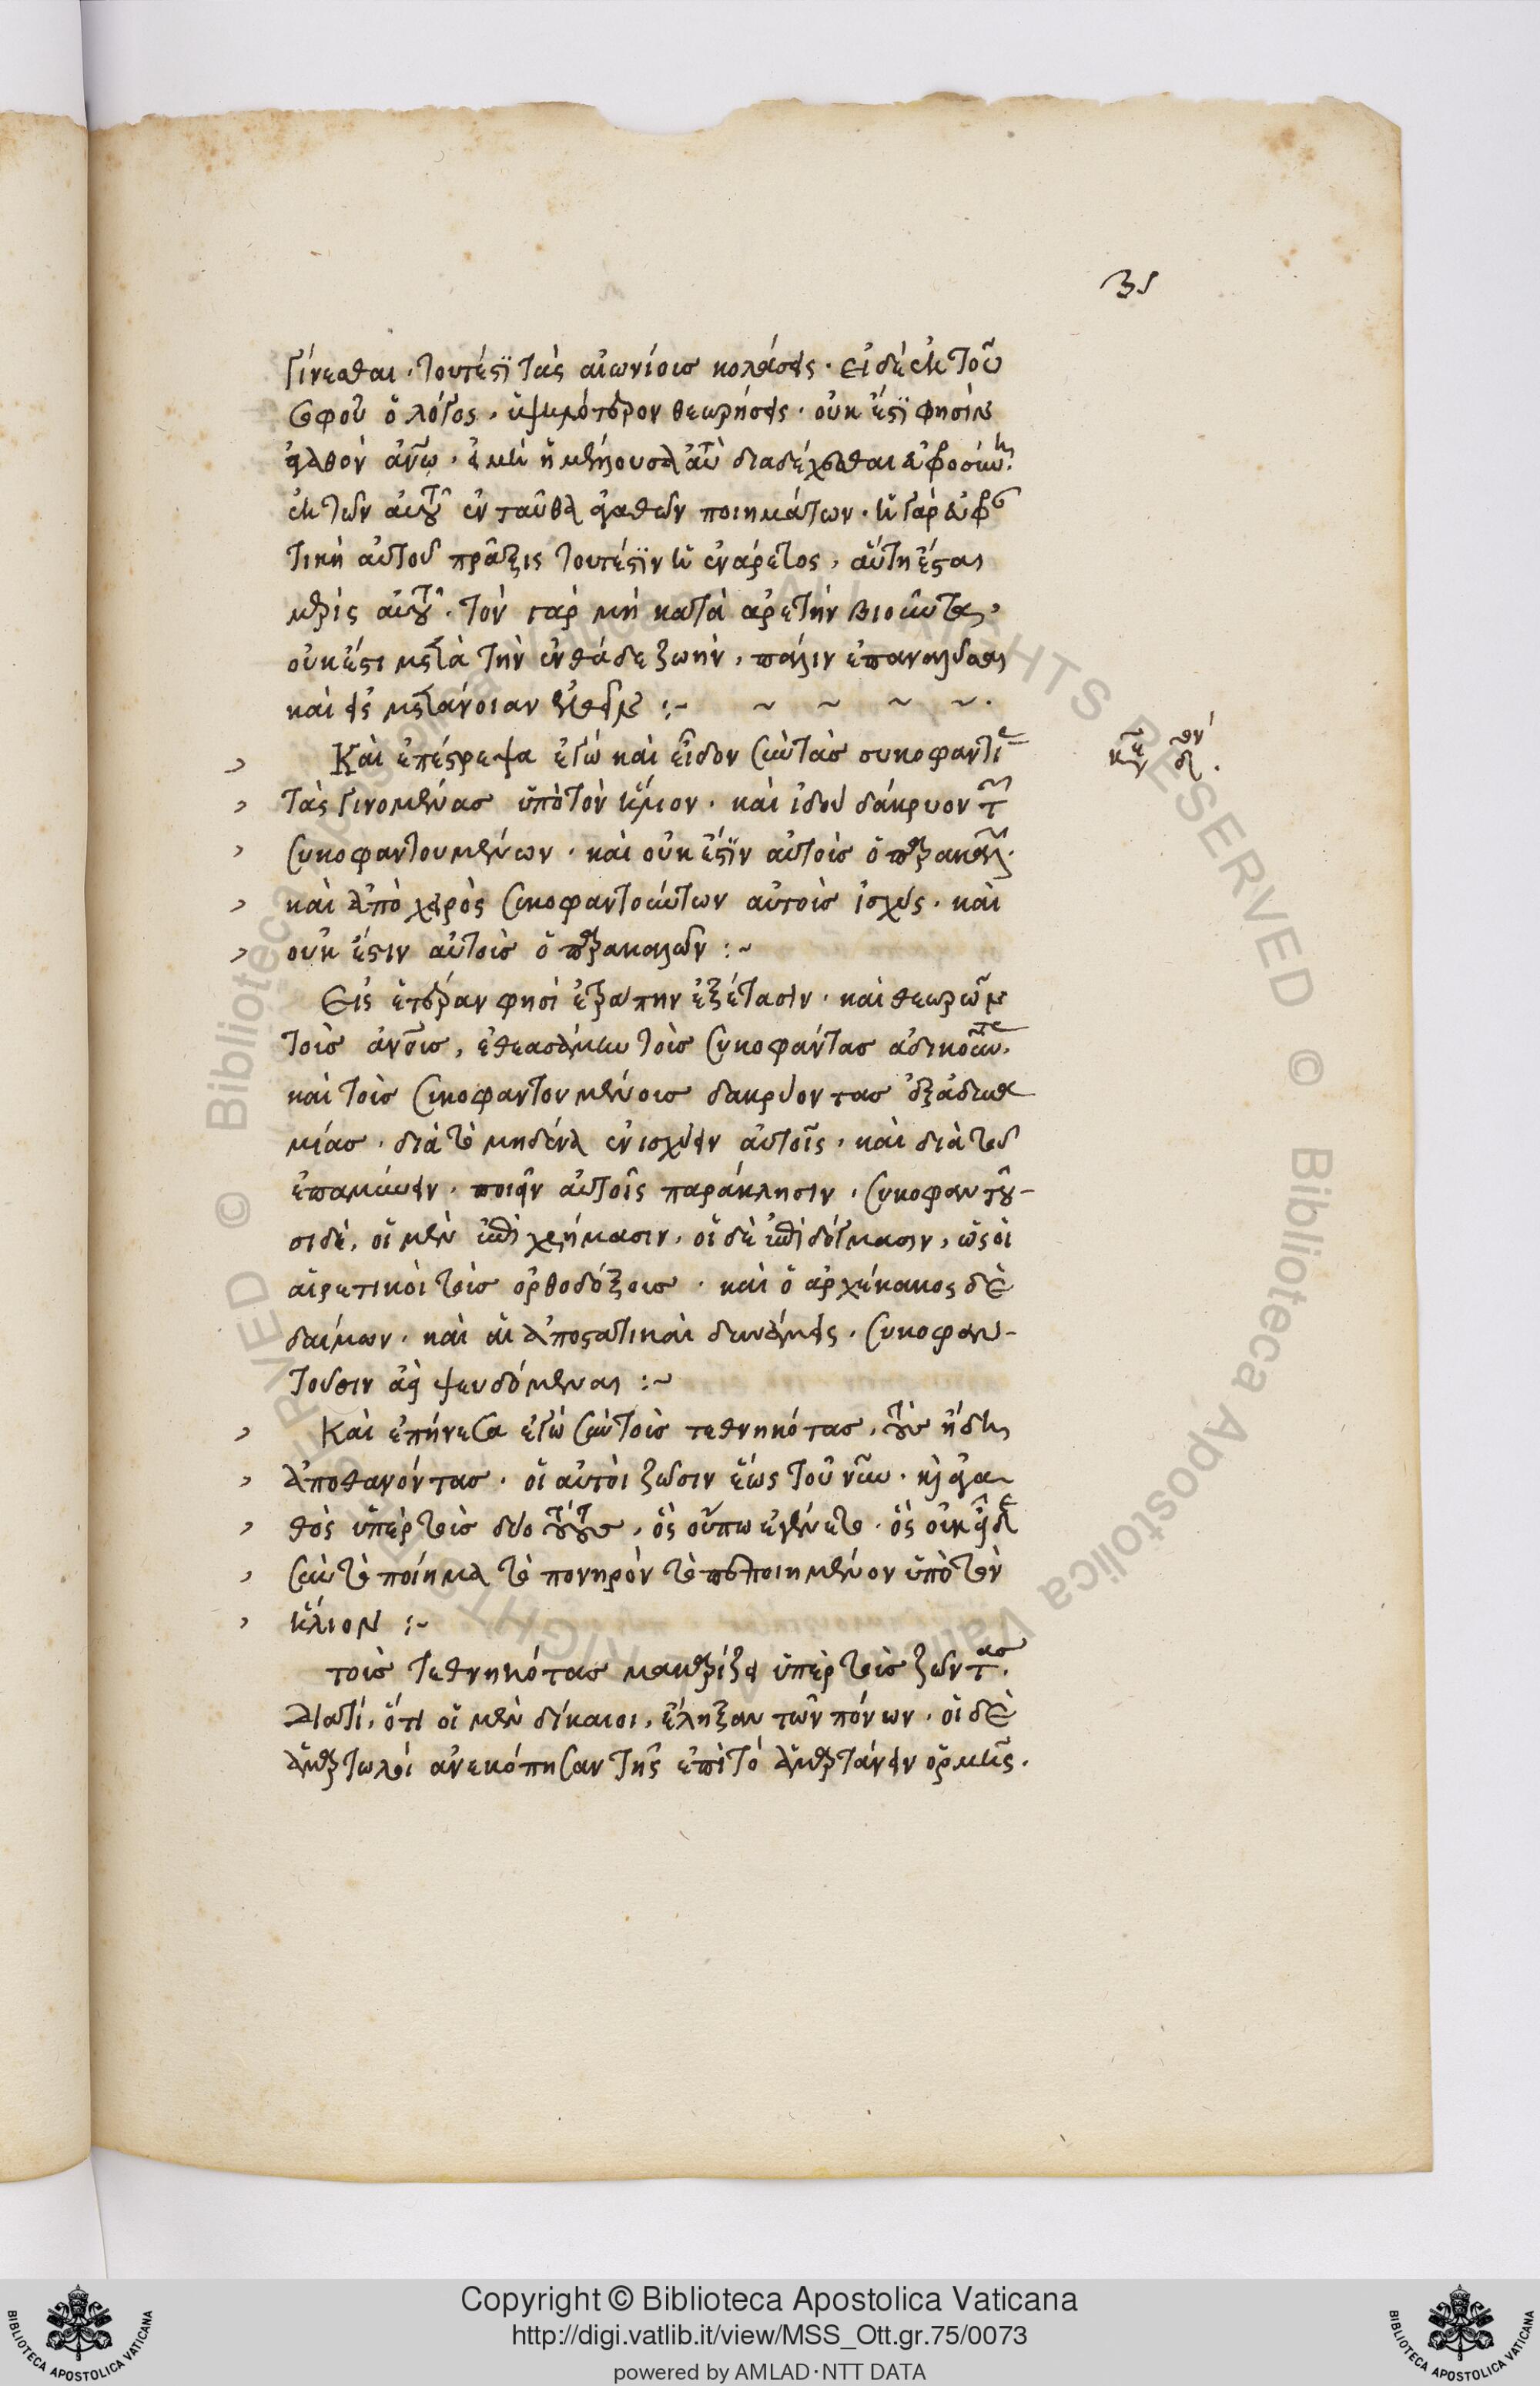 31
γίνεσθαι. τουτέστι τὰς αἰωνίους κολάσεις. εἰ δὲ ἐκ τοῦ
σοφοῦ ὁ λόγος, ὑψηλότερον θεωρήσεις. οὐκ ἔστι φησὶν
ἀγαθὸν ἀνῳ. εἰ μὴ ἡ μέλλουσα αὐτὸν διαδέχεσθαι εὐφροσύνη
ἐκ τῶν αὐτοῦ ἐνταῦθα ἀγαθῶν ποιημάτων. ἡ γὰρ εὐφραν
τικὴ αὐτοῦ πρᾶξις τουτέστιν ἡ ἐνάρετος, αὕτη ἔσται
μερὶς αὐτοῦ. τὸν γὰρ μὴ κατὰ ἀρετὴν βιοῦντα,
οὐκ ἔστι μετὰ τὴν ἐνθάδε ζωὴν, πάλιν ἐπαναλῦσαι
καὶ εἰς μετάνοιαν ἐλθεῖν :~ ~ ~ ~ ~.
Καὶ ἐπέστρεψα ἐγὼ καὶ εἶδον σὺν τὰς συκοφαντί
κείμενον δ.
τὰς γινομένας ὑπὸ τὸν ἥλιον. καὶ ἰδοὺ δάκρυον τῶν
συκοφαντουμένων. καὶ οὐκ ἔστιν αὐτοῖς ὁ παρακαλῶν.
καὶ ἀπὸ χειρὸς συκοφαντούντων αὐτοὺς ἰσχύς. καὶ
οὐκ ἔστιν αὐτοῖς ὁ παρακαλῶν :~
Εἰς ἑτέραν φησὶ ἐτράπην ἐξέτασιν. καὶ θεωρῶν
τοὺς ἀνους, ἐθεασάμην τοὺς συκοφάντας ἀδικοῦντας,
καὶ τοὺς συκοφαντουμένους δακρύοντας ἐξ ἀδυνα
μίας. διὰ τὸ μηδένα ἐνισχύειν αὐτοῖς. καὶ διὰ τοῦ
ἐπαμύνειν. ποιεῖν αὐτοῖς παράκλησιν. συκοφαντοῦ-
σι δὲ, οἱ μὲν ἐπὶ χρήμασιν, οἱ δὲ ἐπὶ δόγμασιν, ὡς οἱ
αἱρετικοὶ τοὺς ὀρθοδόξους. καὶ ὁ ἀρχέκακος δὲ
δαίμων. καὶ αἱ ἀποστατικαὶ δυνάμεις. συκοφαν-
τοῦσιν ἀεὶ ψευδόμεναι :~
Καὶ ἐπήνεσα ἐγὼ σὺν τοὺς τεθνηκότας, τοὺς ἤδη
ἀποθανόντας. οἱ αὐτοὶ ζῶσιν ἕως τοῦ νῦν. καὶ ἀγα
θὸς ὑπὲρ τοὺς δύο τούτους, ὃς οὔπω ἐγένετο. ὃς οὐκ εἶδε
σὺν τὸ ποίημα τὸ πονηρὸν τὸ πεποιημένον ὑπὸ τὸν
ἥλιον :~
τοὺς τεθνηκότας μακαρίζει ὑπὲρ τοὺς ζῶντας.
Διατί, ὅτι οἱ μὲν δίκαιοι, ἔληξαν τῶν πόνων. οἱ δὲ
ἁμαρτωλοὶ ἀνεκόπησαν τῆς ἐπὶ τὸ ἁμαρτάνειν ὁρμῆς.
Copyright © Biblioteca Apostolica Vaticana
http://digi.vatlib.it/view/MSS_Ott.gr.75/0073
powered by AMLAD·NTT DATA